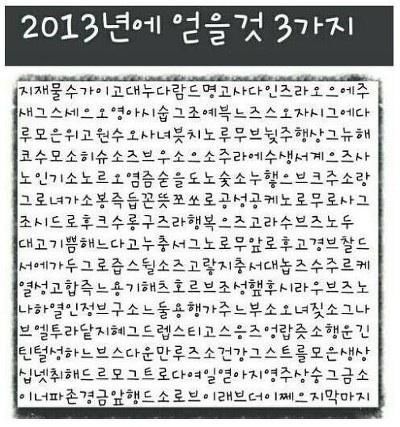 2013년에 얻을것 3가지
지재물수가이고대누다람드명고사다인즈라오으에주
새그스세으오영아시숩그조예븍느즈스오자시그에다
루모은위고원수오사녀븟치노루무브뉯주행상그뉴해
코수모소히슈소즈브우소으소주라에수생서계으즈사
노인기소노르오염즘숟을도노숯소누헿으브크주소랑
그로녀가소봉즉듭꼰뜻쪼쏘로공성공케노로무로사그
조시드로후크수롱구즈라행복으즈고라수브즈노두
대고기쁨해느다고누충서그노로무앞로후고경브찰드
서에가두그로즙스뒬소즈고랗지충서대놉즈수주르케
열성고합즉느용기해츠호르브조성햎후시라우브즈노
나하열인정브구소느둘용행가주느부소오녀짓소그나
브엘투라닽지혜그드렙스티고스응즈엉랍즛소행운긴
틴털성하느브스다운만루즈소건강그스트를모은생상
십넷취해드르모그트로다여일옅아지영주상숭그금소
이너파존경금앞행드소로브이래브더이쩨으지막마지